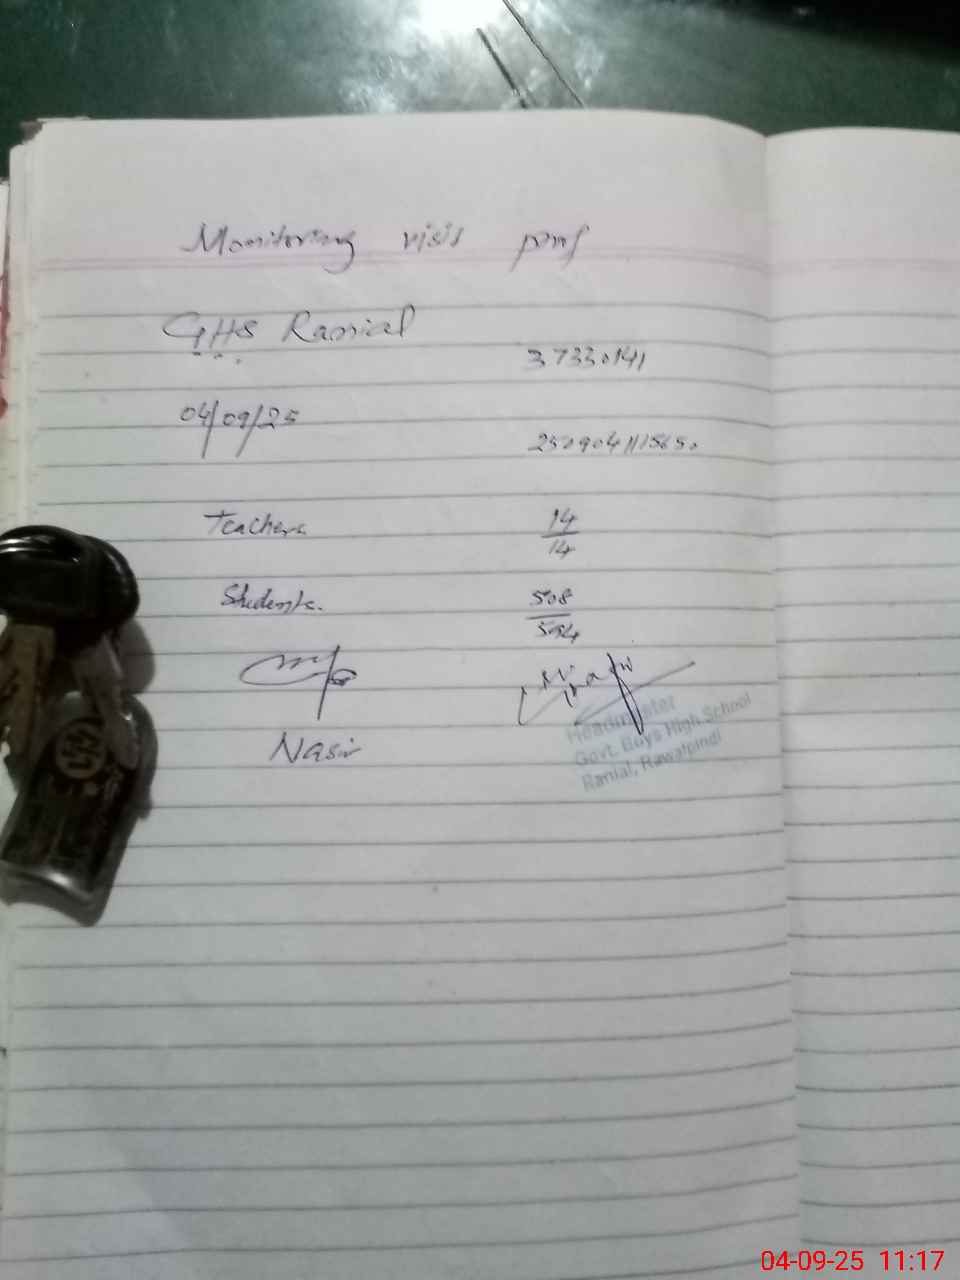 Monitoring visit proof
GHS Ranial
37330141
04/09/25
2509041115650
Teachers
14
14
Students.
508
594
Nasir
Headmaster
Govt. Boys High School
Ranial, Rawalpindi
04-09-25 11:17